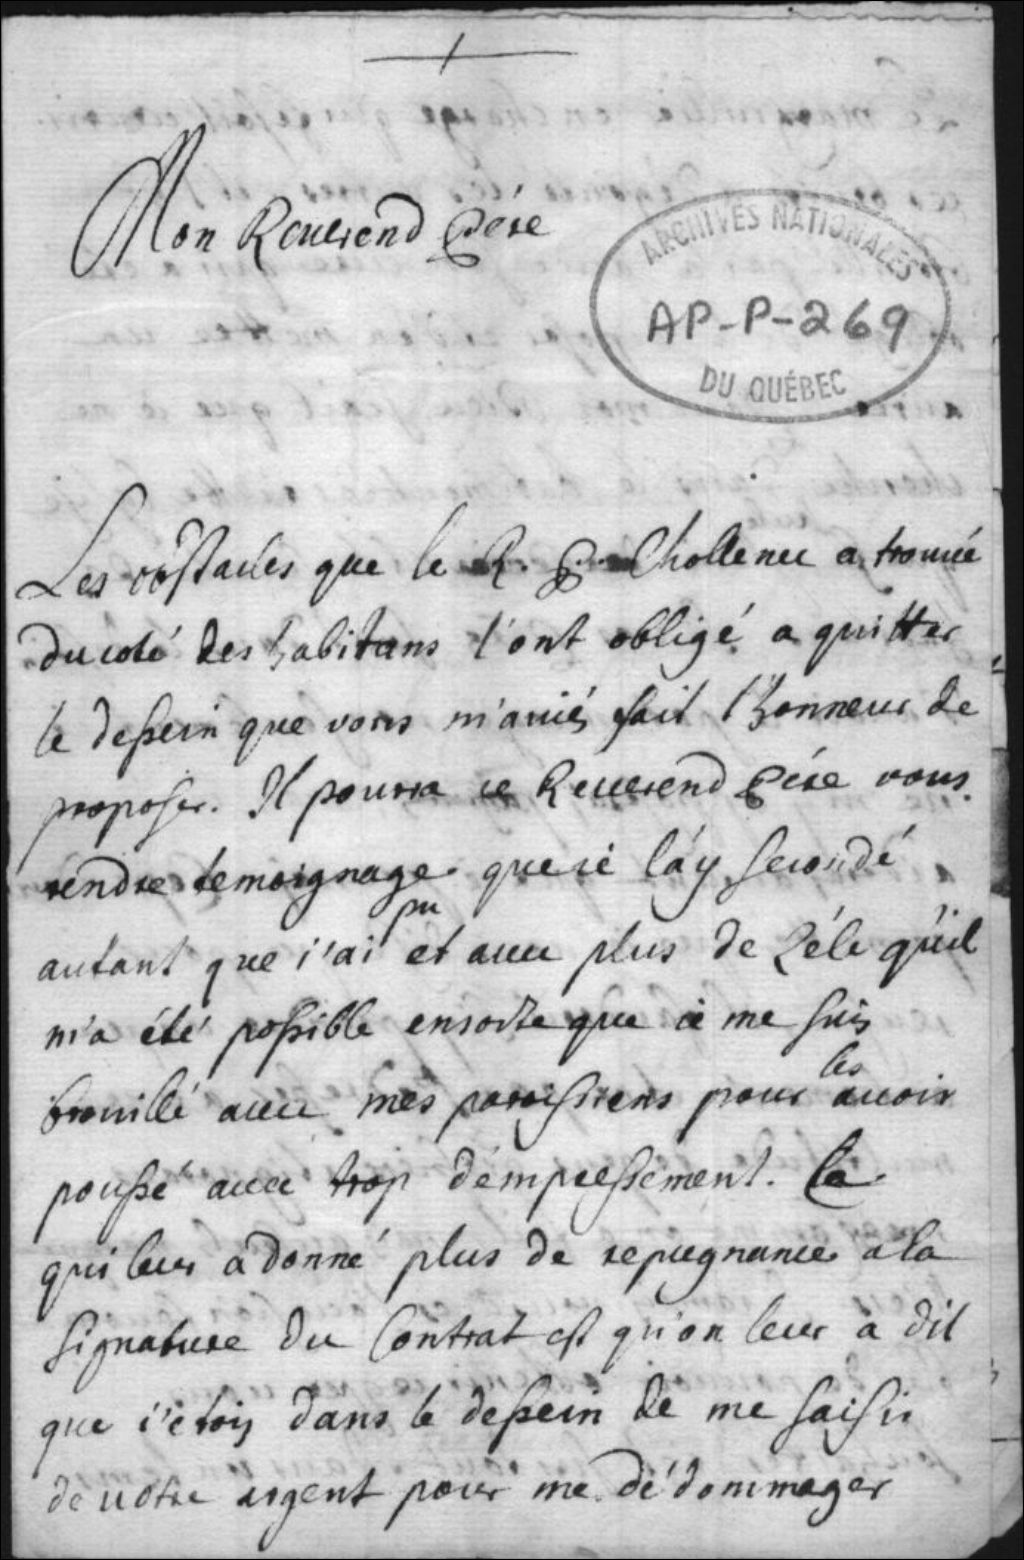 Mon Reuerend Pére
ARCHIVES NATIONALES
AP-P-269
DU QUÉBEC
Les obstacles que le R. P. Chollenec a trouué
du coté des habitans l'ont obligé a quitter
le dessein que vous m'auiés fait l'honneur de
proposer. Il pourra ce Reuerend Pére vous
rendre temoignage que ie l'ay secondé
autant que i'ai pu et auec plus de zéle qu'il
m'a été possible ensorte que ie me suis
brouillé auec mes paroissiens pour les auoir
poussé auec trop d'empressement. Ce
qui leur a donné plus de repugnance a la
signature du Contrat est qu'on leur a dit
que i'étois dans le dessein de me saisir
de votre argent pour me dédommager